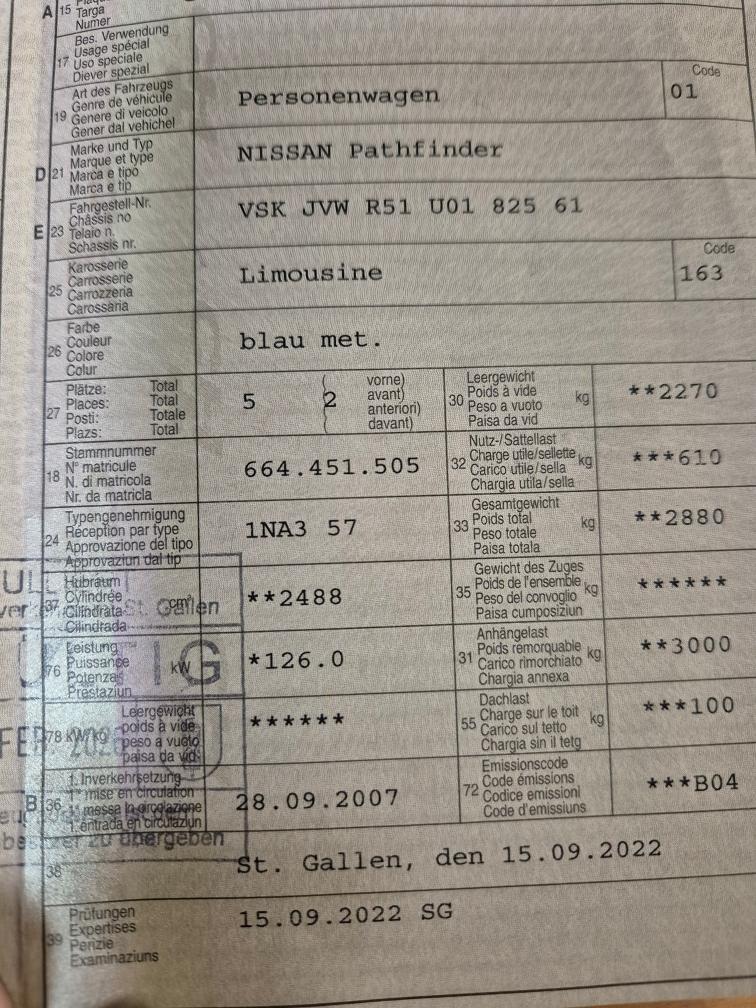 A 15 Targa
Numer
17 Bes. Verwendung
Usage spécial
Uso speciale
Diever spezial
19 Art des Fahrzeugs
Genre de véhicule
Genere di veicolo
Gener dal vehichel
Personenwagen
Code
01
D 21 Marke und Typ
Marque et type
Marca e tipo
Marca e tip
NISSAN Pathfinder
E 23 Fahrgestell-Nr.
Châssis no
Telaio n.
Schassis nr.
VSK JVW R51 U01 825 61
25 Karosserie
Carrosserie
Carrozzeria
Carossaria
Limousine
Code
163
26 Farbe
Couleur
Colore
Colur
blau met.
27 Plätze: Total
Places: Total
Posti: Totale
Plazs: Total
5 2 vorne)
avant)
anteriori)
davant)
30 Leergewicht
Poids à vide
Peso a vuoto
Paisa da vid
kg
**2270
18 Stammnummer
N° matricule
N. di matricola
Nr. da matricla
664.451.505
32 Nutz-/Sattellast
Charge utile/sellette
Carico utile/sella
Chargia utila/sella
kg
***610
24 Typengenehmigung
Réception par type
Approvazione del tipo
Approvaziun dal tip
1NA3 57
33 Gesamtgewicht
Poids total
Peso totale
Paisa totala
kg
**2880
37 Hubraum
Cylindrée
Cilindrata
Cilindrada
cm³
**2488
35 Gewicht des Zuges
Poids de l'ensemble
Peso del convoglio
Paisa cumposiziun
kg
******
76 Leistung
Puissance
Potenza
Prestaziun
kW
*126.0
31 Anhängelast
Poids remorquable
Carico rimorchiato
Chargia annexa
kg
**3000
78 kW/kg Leergewicht
poids à vide
peso a vuoto
paisa da vid
******
55 Dachlast
Charge sur le toit
Carico sul tetto
Chargia sin il tetg
kg
***100
B 36 1. Inverkehrsetzung
1re mise en circulation
1a messa in circolazione
1. entrada en circulaziun
28.09.2007
72 Emissionscode
Code émissions
Codice emissioni
Code d'emissiuns
***B04
38
St. Gallen, den 15.09.2022
39 Prüfungen
Expertises
Perizie
Examinaziuns
15.09.2022 SG
St. Gallen
IG
FEB
zu übergeben